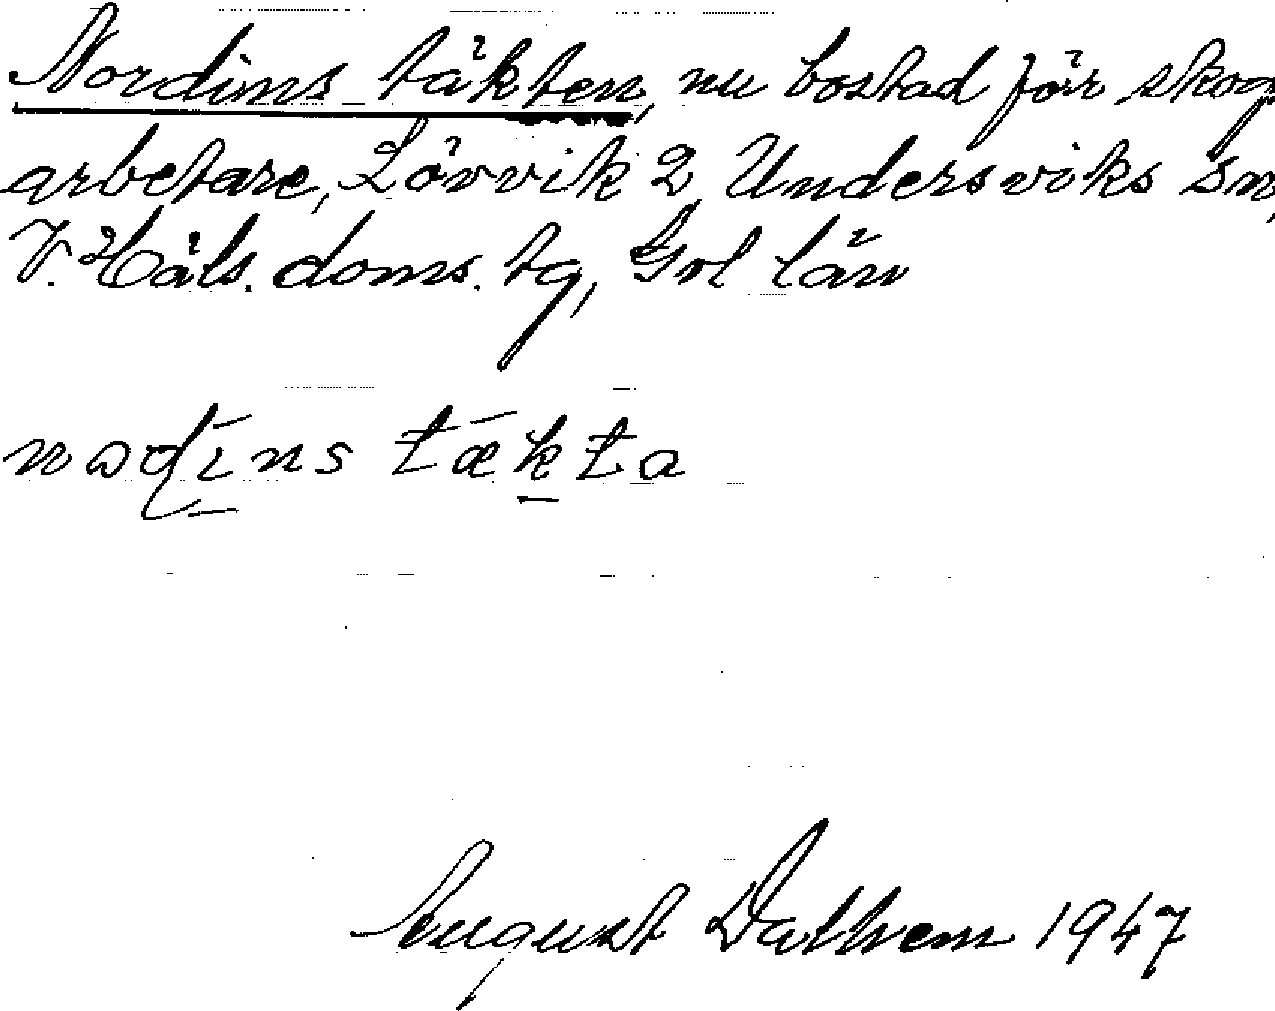 Nordins täkten, nu bostad för skog
arbetare, Lövvik 2, Undersviks sn,
V. Häls. doms. tg, Gvl län
nɔdins tækta
August Dalhem 1947